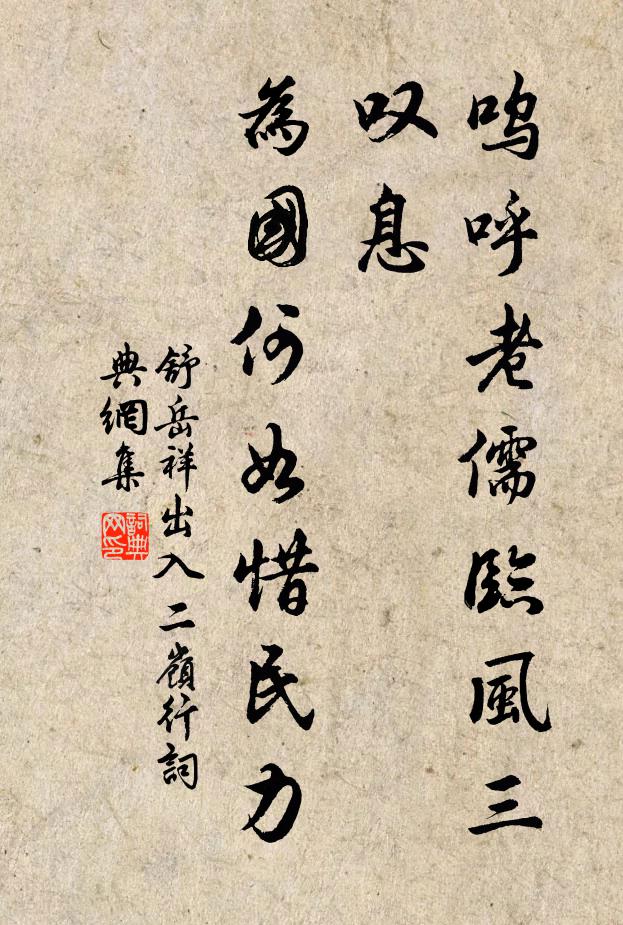 呜呼老儒臨風三
叹息
為國何如惜民力
舒岳祥出入二嶺行詞
典網集
詞典网印